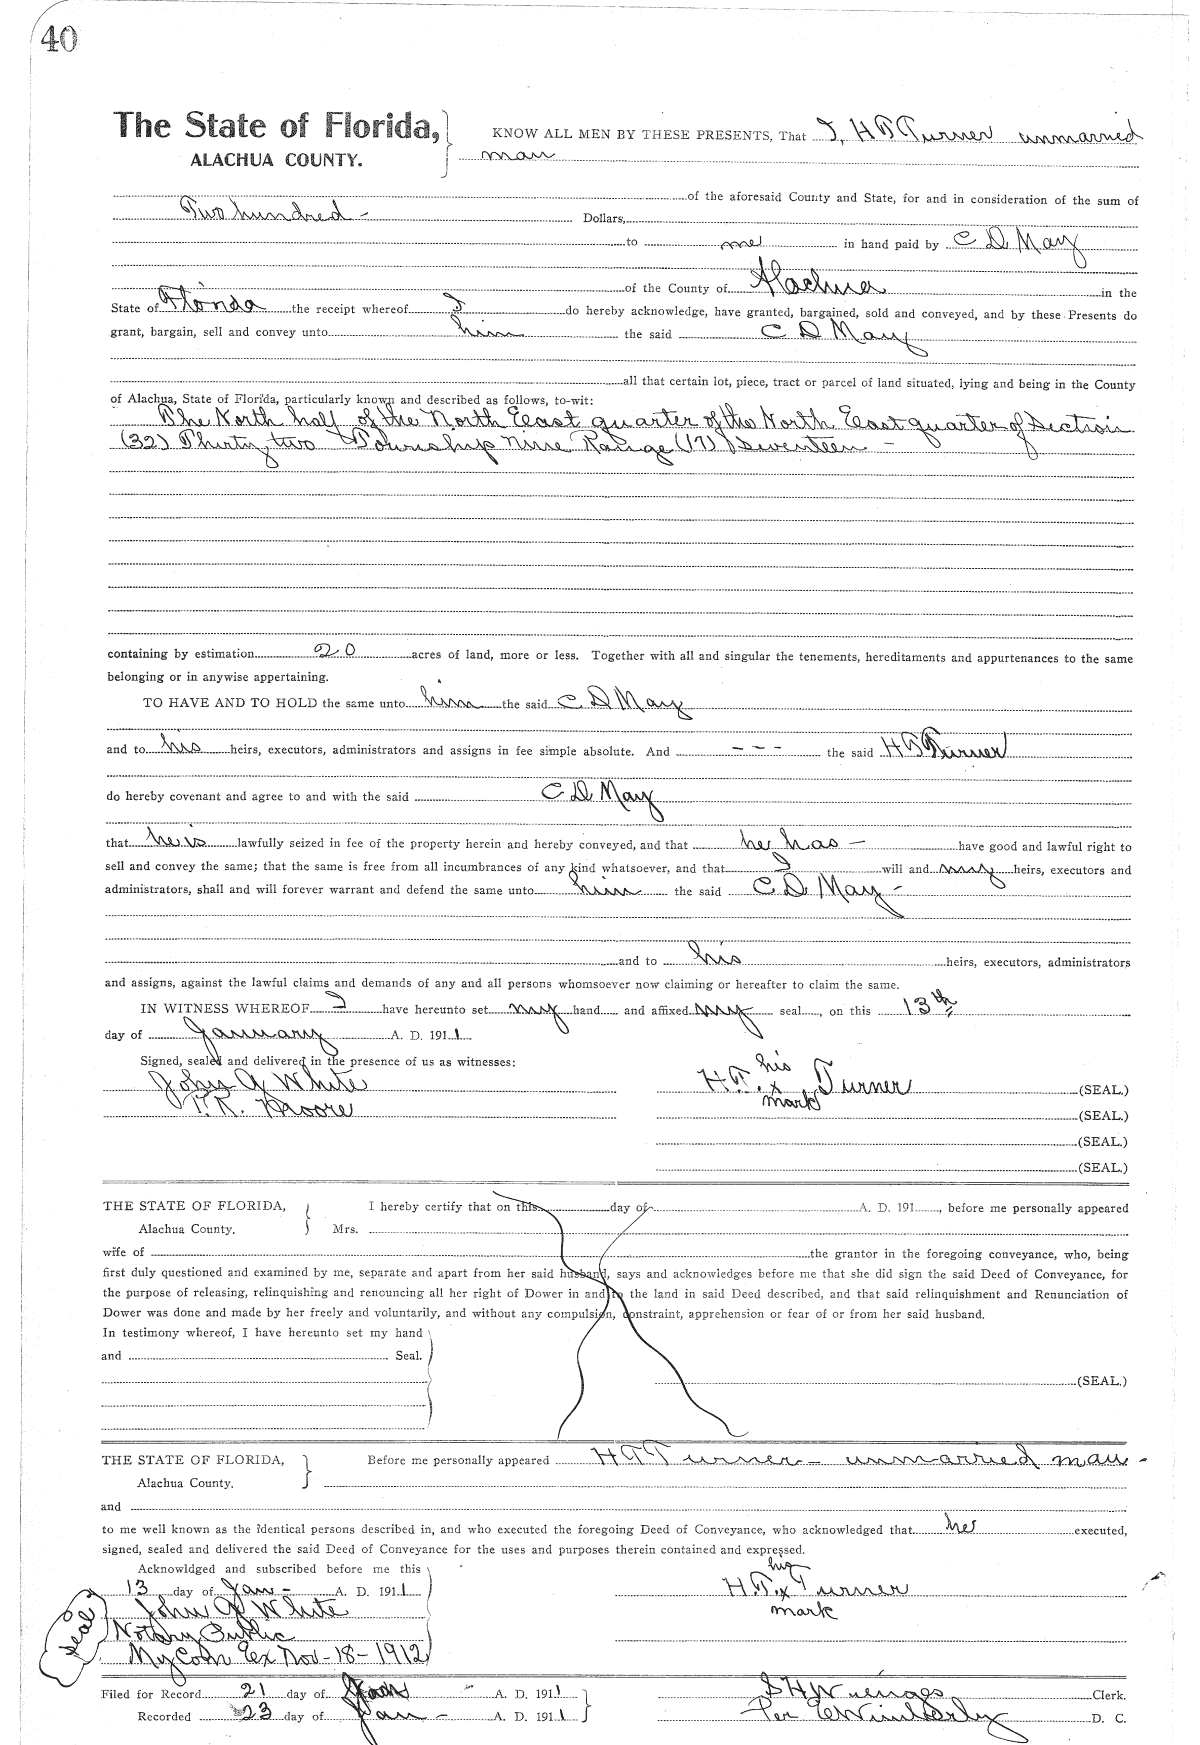 40
The State of Florida,
ALACHUA COUNTY.
KNOW ALL MEN BY THESE PRESENTS, That I, H T Turner unmarried
man
of the aforesaid County and State, for and in consideration of the sum of
Two hundred - Dollars,
to me in hand paid by C D May
of the County of Alachua in the
State of Florida the receipt whereof I do hereby acknowledge, have granted, bargained, sold and conveyed, and by these Presents do
grant, bargain, sell and convey unto him the said C D May
all that certain lot, piece, tract or parcel of land situated, lying and being in the County
of Alachua, State of Florida, particularly known and described as follows, to-wit:
The North half of the North East quarter of the North East quarter of Section
(32) Thirty two Township Nine Range (17) Seventeen -
containing by estimation 20 acres of land, more or less. Together with all and singular the tenements, hereditaments and appurtenances to the same
belonging or in anywise appertaining.
TO HAVE AND TO HOLD the same unto him the said C D May
and to his heirs, executors, administrators and assigns in fee simple absolute. And - - - the said H T Turner
do hereby covenant and agree to and with the said C D May
that he is lawfully seized in fee of the property herein and hereby conveyed, and that he has - have good and lawful right to
sell and convey the same; that the same is free from all incumbrances of any kind whatsoever, and that I will and my heirs, executors and
administrators, shall and will forever warrant and defend the same unto him the said C D May -
and to his heirs, executors, administrators
and assigns, against the lawful claims and demands of any and all persons whomsoever now claiming or hereafter to claim the same.
IN WITNESS WHEREOF I have hereunto set my hand and affixed my seal, on this 13th
day of January A. D. 1911
Signed, sealed and delivered in the presence of us as witnesses:
his
John A White H.T. x Turner (SEAL.)
mark
T. R. Moore (SEAL.)
(SEAL.)
(SEAL.)
THE STATE OF FLORIDA, I hereby certify that on this day of A. D. 191, before me personally appeared
Alachua County. Mrs.
wife of the grantor in the foregoing conveyance, who, being
first duly questioned and examined by me, separate and apart from her said husband, says and acknowledges before me that she did sign the said Deed of Conveyance, for
the purpose of releasing, relinquishing and renouncing all her right of Dower in and to the land in said Deed described, and that said relinquishment and Renunciation of
Dower was done and made by her freely and voluntarily, and without any compulsion, constraint, apprehension or fear of or from her said husband.
In testimony whereof, I have hereunto set my hand
and Seal.
(SEAL.)
THE STATE OF FLORIDA, Before me personally appeared H T Turner - unmarried man -
Alachua County.
and
to me well known as the identical persons described in, and who executed the foregoing Deed of Conveyance, who acknowledged that he executed,
signed, sealed and delivered the said Deed of Conveyance for the uses and purposes therein contained and expressed.
Acknowldged and subscribed before me this
his
13 day of Jan - A. D. 1911 H.T. x Turner
mark
John A White
Notary Public
My Com Ex Nov - 18 - 1912
Seal
Filed for Record 21 day of Jan A. D. 1911 S H Wienges Clerk.
Recorded 23 day of Jan - A. D. 1911 Per E Wimberly D. C.